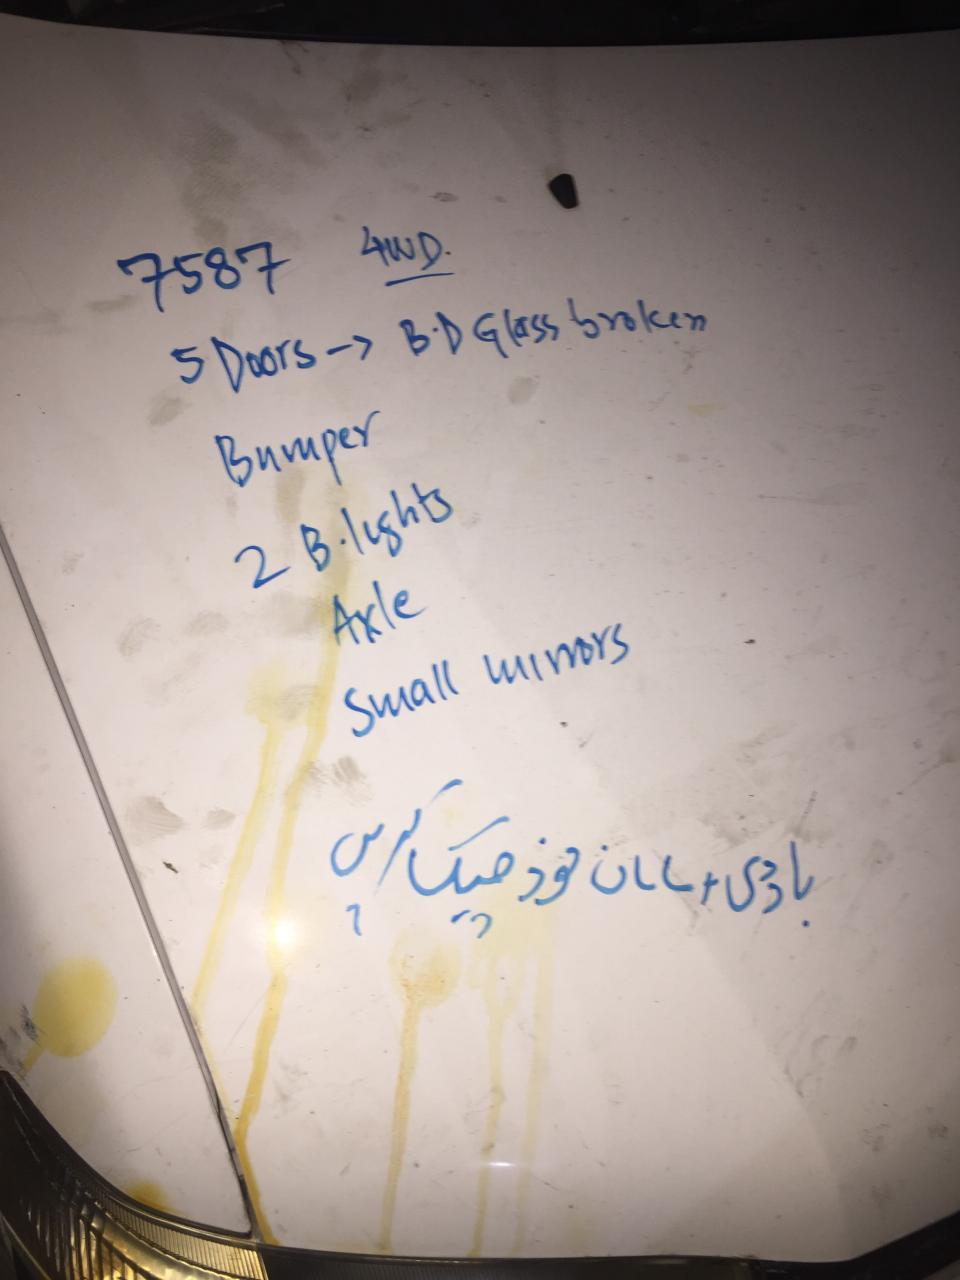 7587 4WD.
5 Doors -> B.D Glass broken
Bumper
2 B.lights
Axle
Small mirrors
باڈی + سامان خود چیک کریں